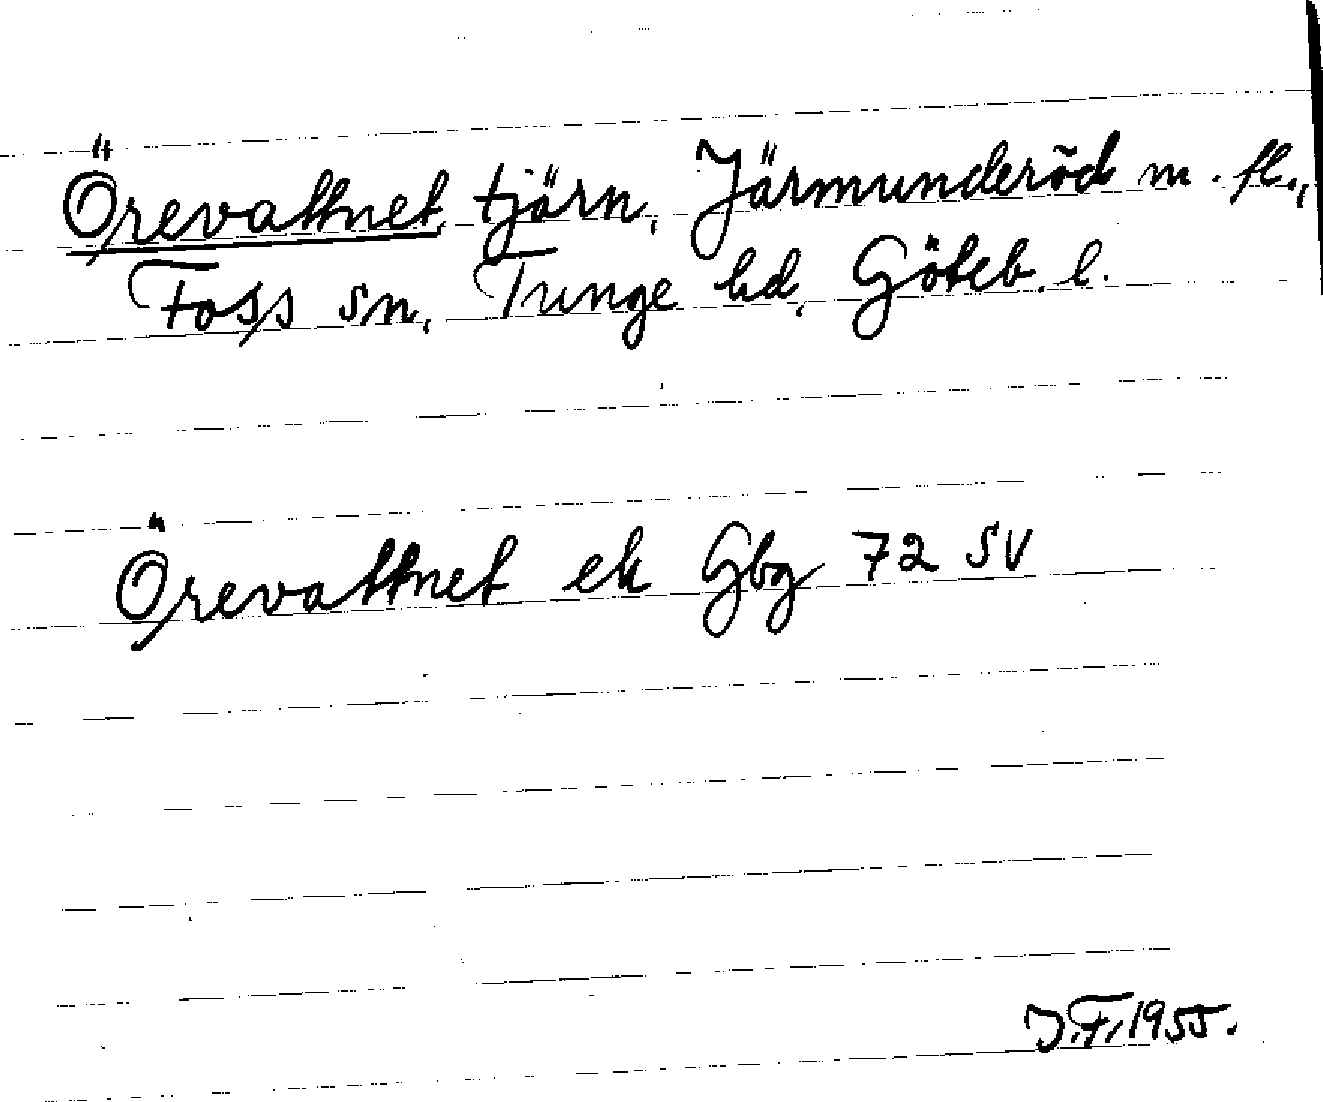 Örevattnet, tjärn, Järmunderöd m. fl.,
Foss sn, Tunge hd, Göteb. l.
Örevattnet ek Gbg 72 SV
J.F. 1955.